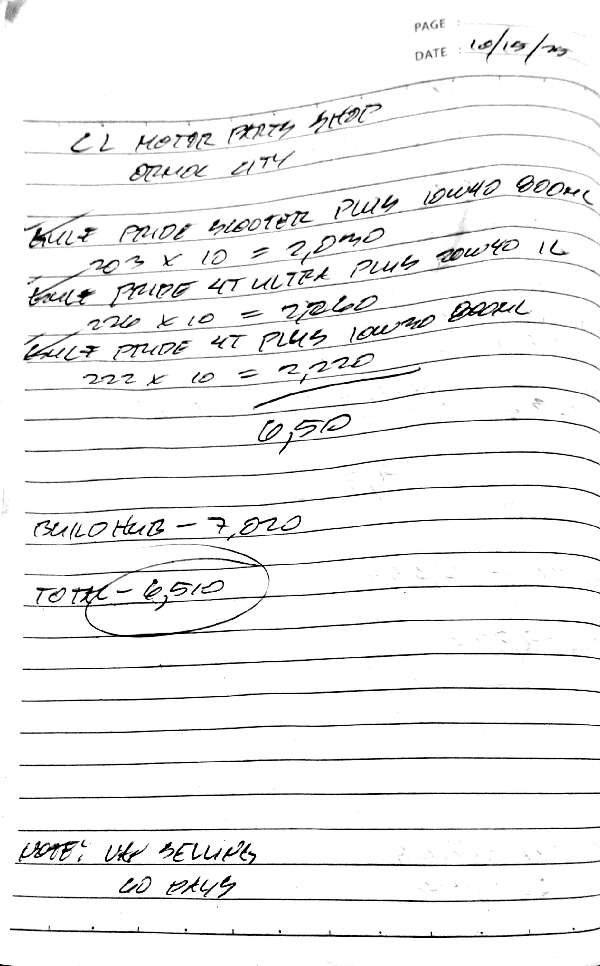 PAGE :
DATE : 10/15/25
CL MOTOR PARTS SHOP
ORMOC CITY
GULF PRIDE SCOOTER PLUS 10W40 800ML
203 x 10 = 2,030
GULF PRIDE 4T ULTRA PLUS 20W40 1L
226 x 10 = 2,260
GULF PRIDE 4T PLUS 10W30 800ML
222 x 10 = 2,220
6,510
BUILDHUB - 7,020
TOTAL - 6,510
NOTE: VAN SELLING
60 DAYS